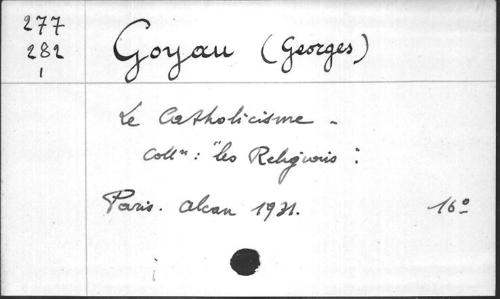 277
282
1
Goyau (Georges)
Le Catholicisme -
Collⁿ : "les Religions".
Paris. Alcan 1931. 16º